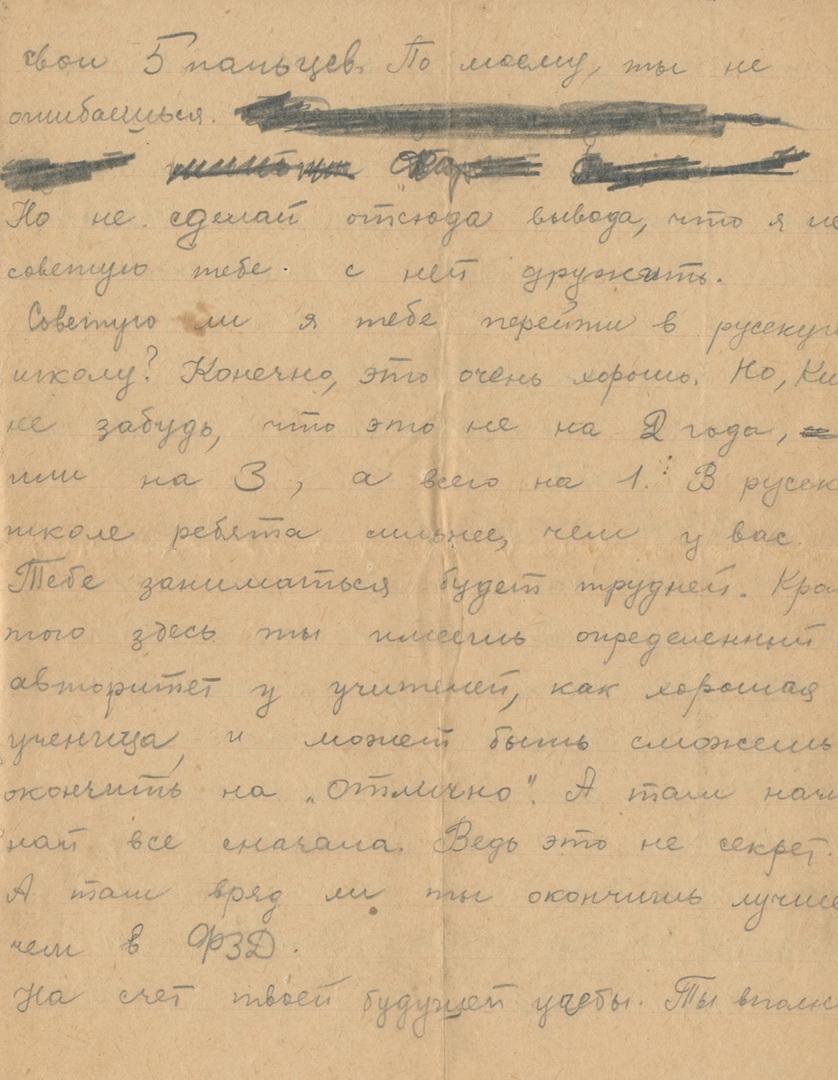 свои 5 пальцев. По моему, ты не
ошибаешься.
Но не сделай отсюда вывода, что я не
советую тебе с ней дружить.
Советую ли я тебе перейти в русскую
школу? Конечно, это очень хорошо. Но, Ки
не забудь, что это не на 2 года,
или на 3, а всего на 1. В русск
школе ребята сильнее, чем у вас.
Тебе заниматься будет трудней. Кро
того здесь ты имеешь определенный
авторитет у учителей, как хорошая
ученица, и может быть сможешь
окончить на „отлично“. А там начи
най все сначала. Ведь это не секрет.
А там вряд ли ты окончишь лучше
чем в ФЗД.
На счет твоей будущей учебы. Ты вполн